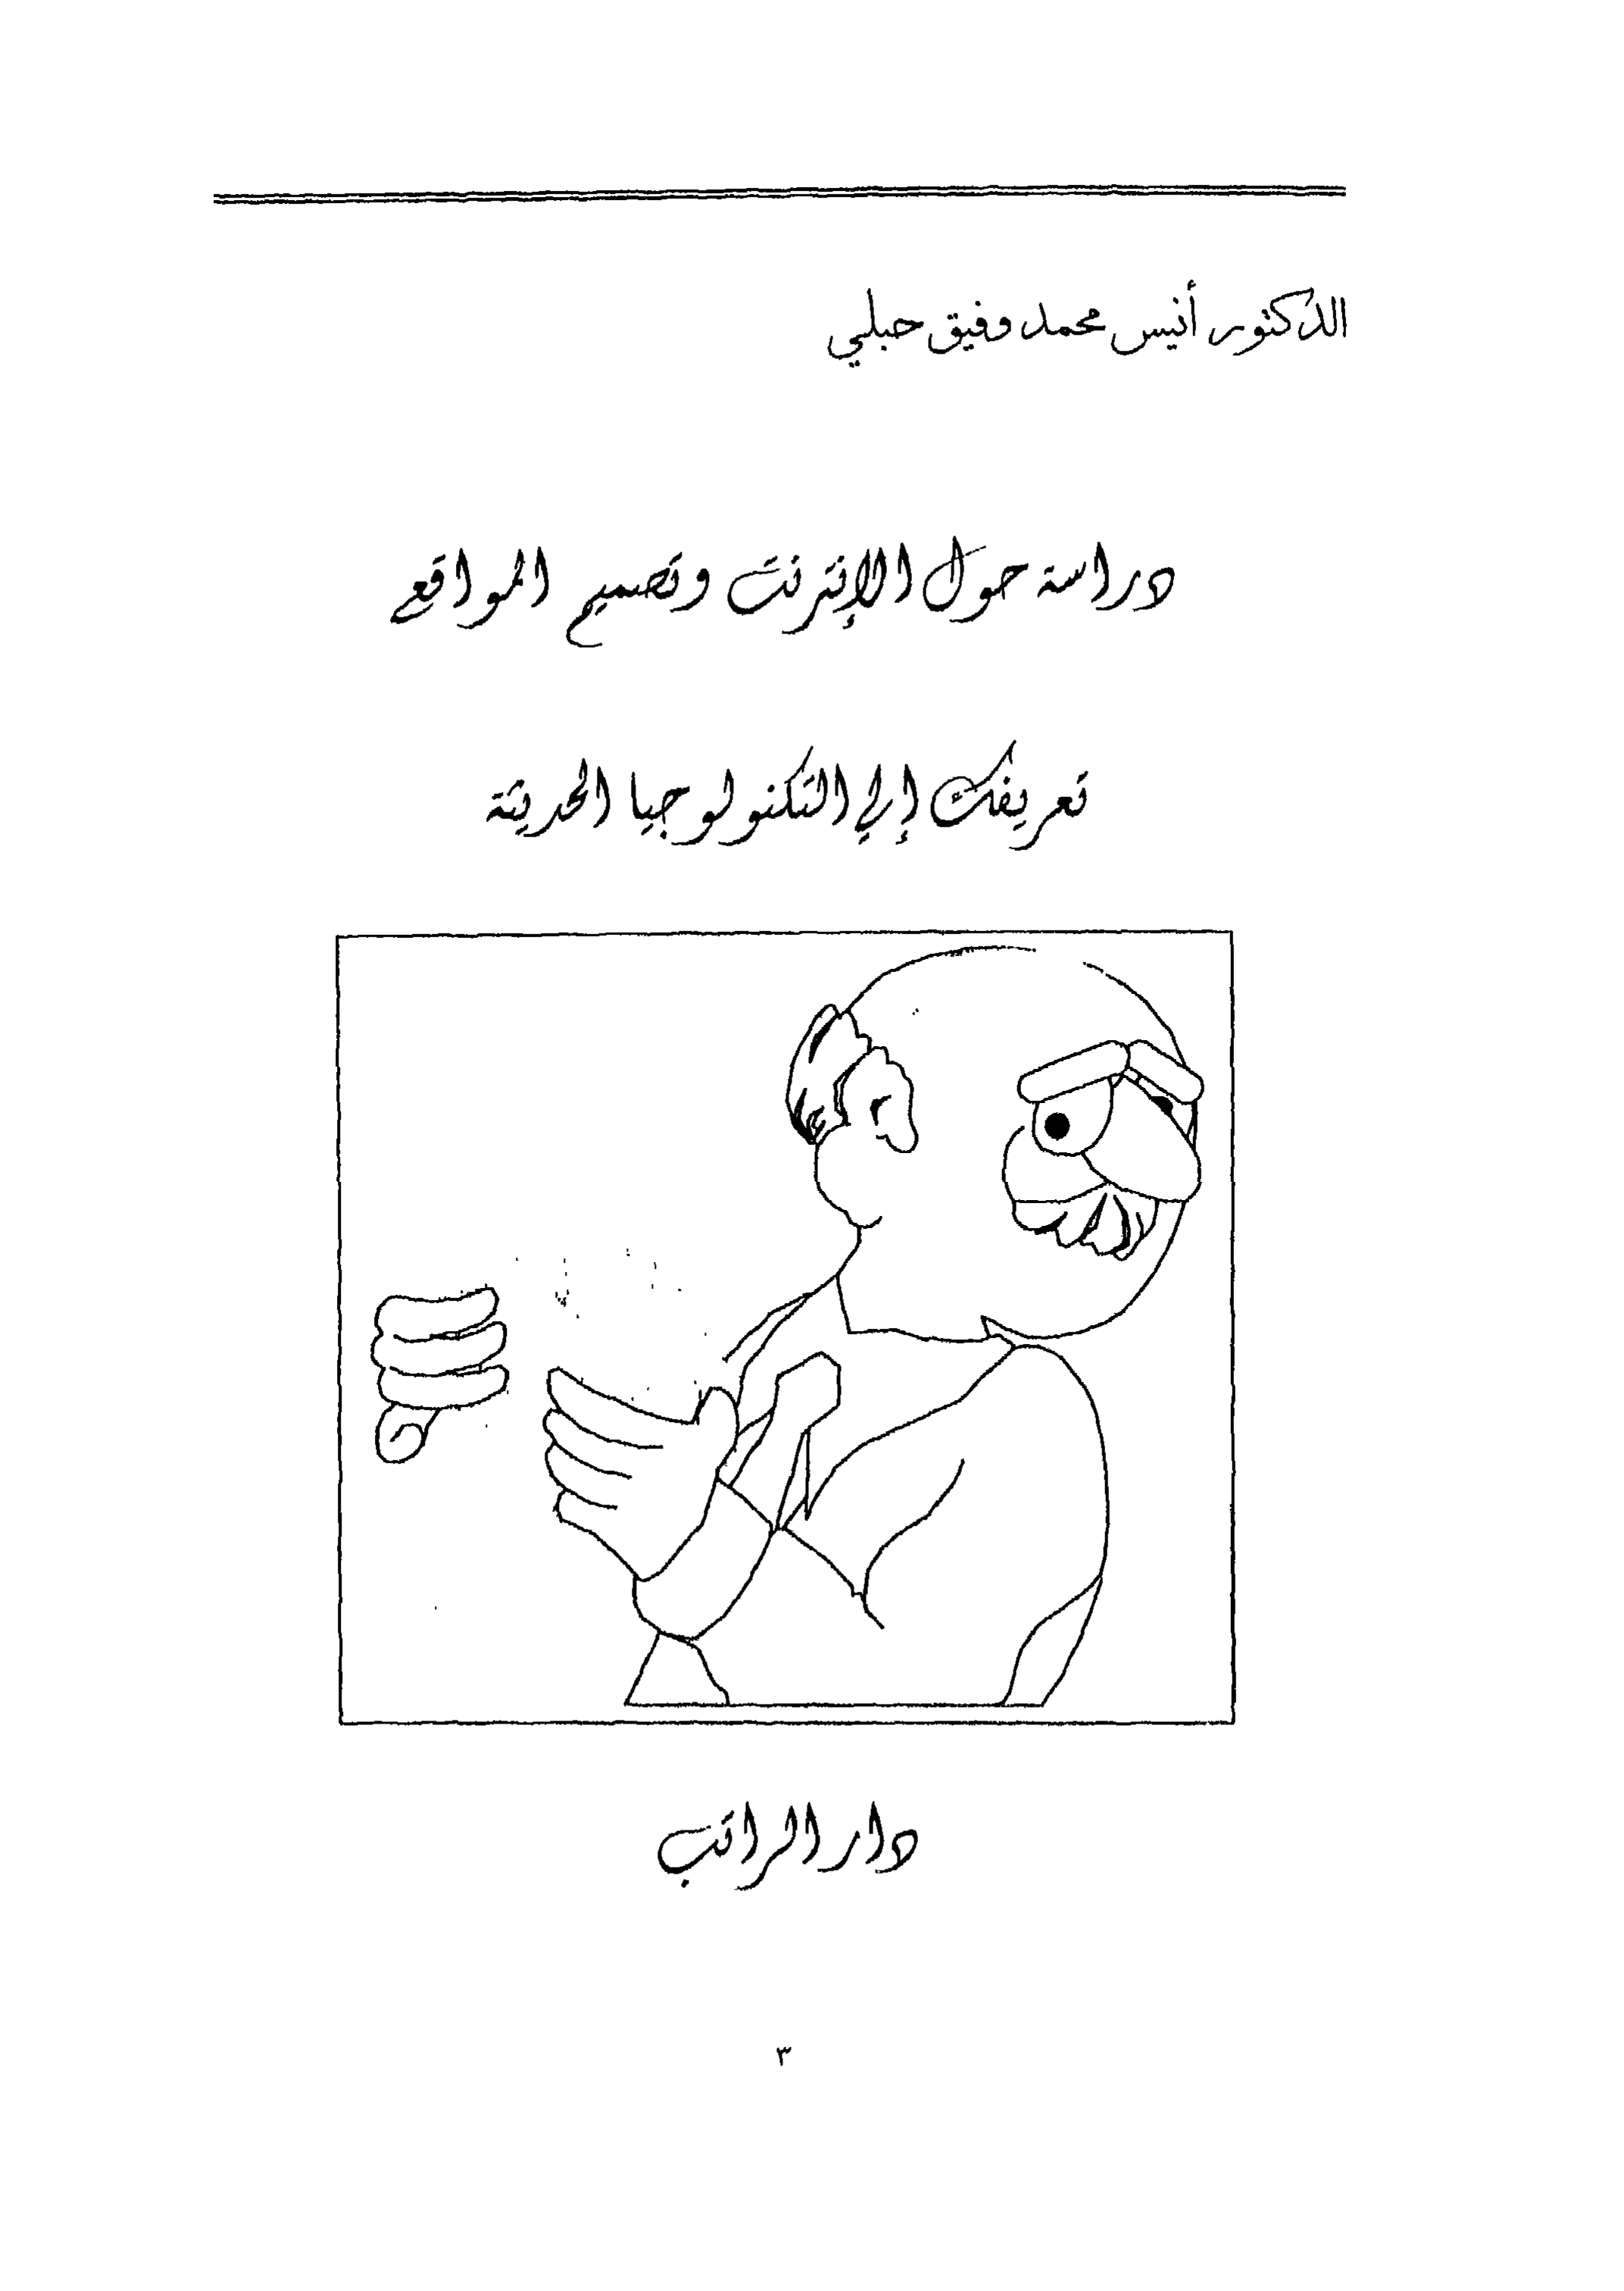 الدكتور أنيس محمد وفيق حبلي
دراسة حول الإنترنت وتصميم المواقع
تعريفك إلي التكنولوجيا الحديثة
دار الراتب
٣